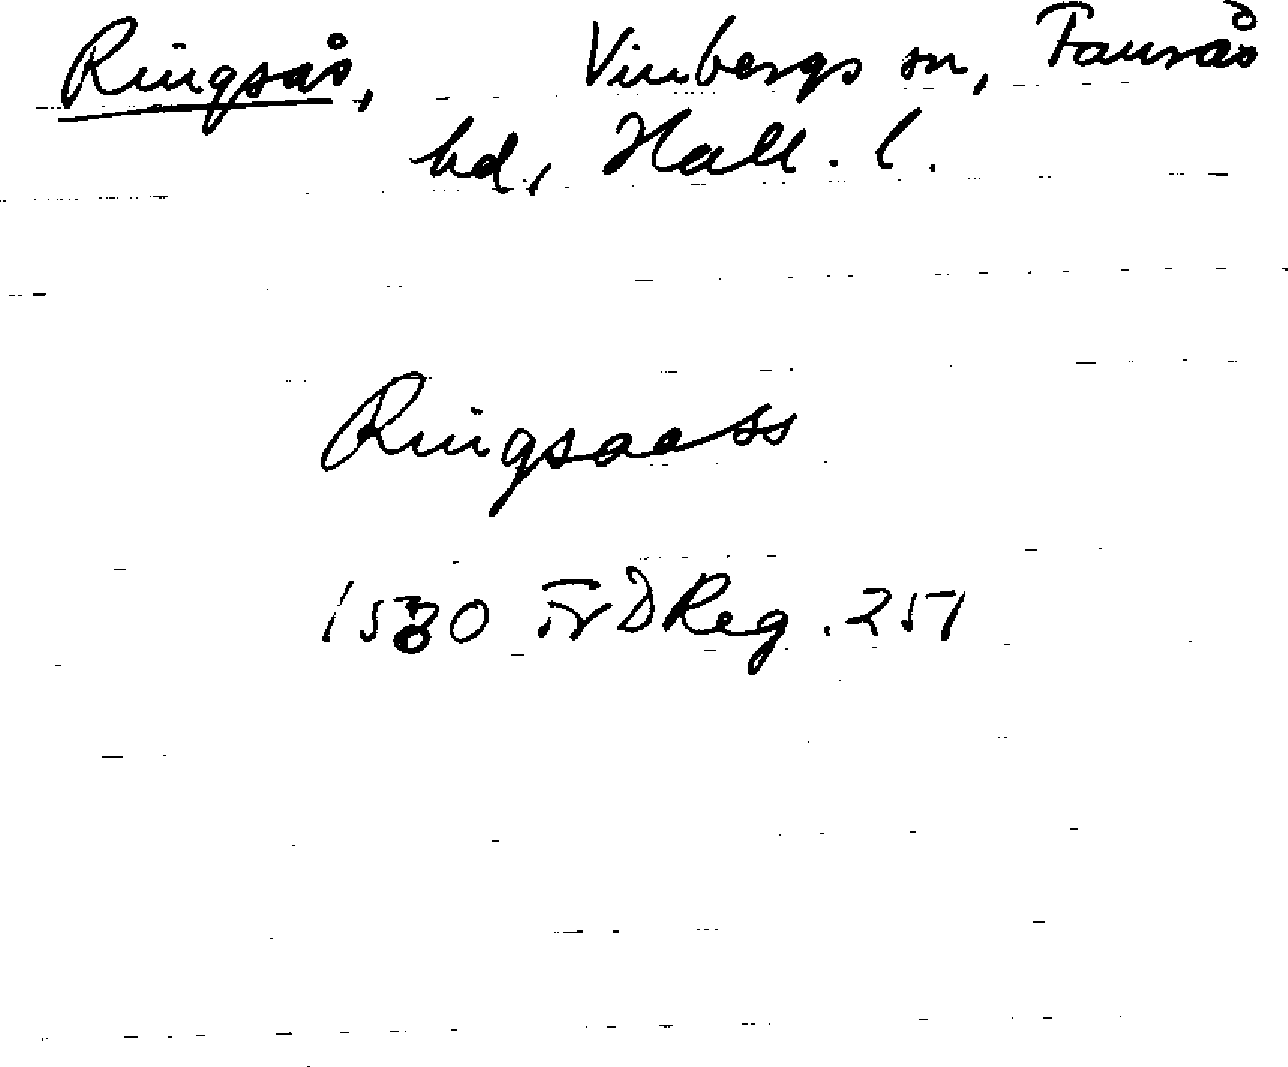 Ringsås, Vinbergs sn, Faurås
hd, Hall. l.
Ringsaass
1580 FrDReg. 251